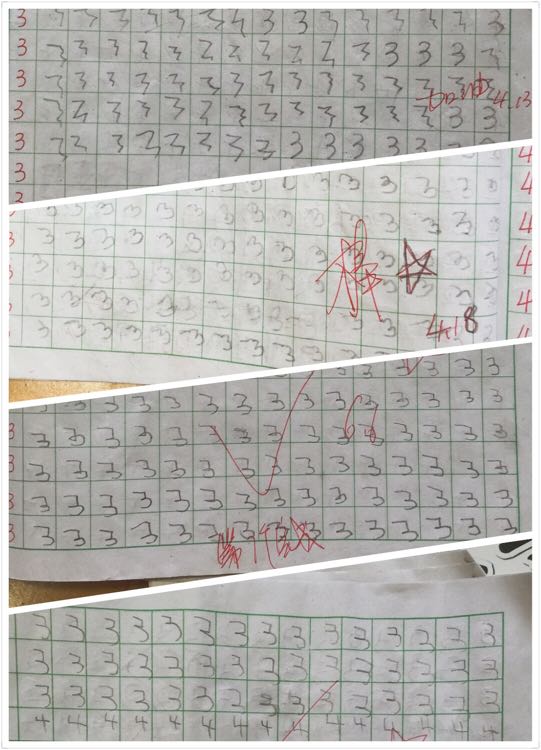 3 3 3 3 3 3 3 3 3 3 3 3 3 3
3 3 3 3 3 3 3 3 3 3 3 3 3 3
3 3 3 3 3 3 3 3 3 3 3 3 3 3
加油 4.13
3 3 3 3 3 3 3 3 3 3 3 3 3 3
3 3 3 3 3 3 3 3 3 3 3 3 3 3
3
3 3 3 3 3 3 3 3 3 3 3 3 3 3 4
3 3 3 3 3 3 3 3 3 3 3 3 3 3 4
3 3 3 3 3 3 3 3 3 3 3 3 3 3 4
棒
3 3 3 3 3 3 3 3 3 3 3 3 3 3 4
3 3 3 3 3 3 3 3 3 3 3 3 3 3 4
4.18
3 3 3 3 3 3 3 3 3 3 3 3 3 3
3 3 3 3 3 3 3 3 3 3 3 3 3 3 3
3 3 3 3 3 3 3 3 3 3 3 3 3 3 3
3 3 3 3 3 3 3 3 3 3 3 3 3 3 3
3 3 3 3 3 3 3 3 3 3 3 3 3 3 3
3 3 3 3 3 3 3 3 3 3 3 3 3 3 3
3 3 3 3 3 3 3 3 3 3 3 3 3 3 3
3 3 3 3 3 3 3 3 3 3 3 3 3 3 3
3 3 3 3 3 3 3 3 3 3 3 3 3 3 3
4 4 4 4 4 4 4 4 4 4 4 4 4 4 4